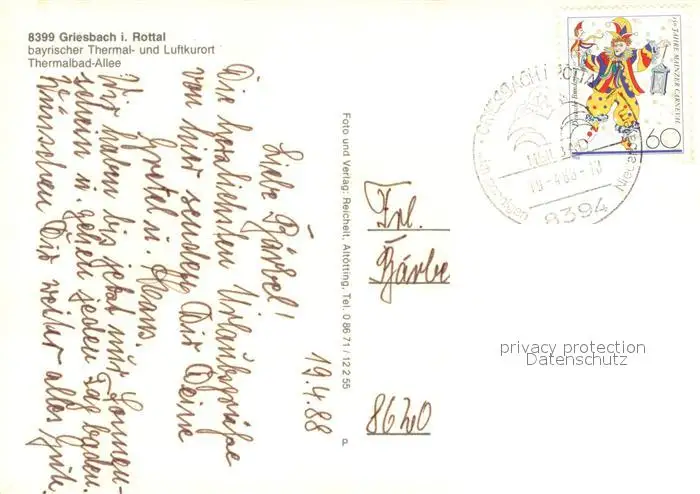 8399 Griesbach i. Rottal
bayrischer Thermal- und Luftkurort
Thermalbad-Allee
19.4.88
Liebe Bärbel!
Die herzlichsten Urlaubsgrüße
von hier senden Dir Deine
Gretel u. Hans.
Wir haben bis jetzt nur Sonnen-
schein u. gehen jeden Tag baden.
Wünschen Dir weiter alles Gute.
Foto und Verlag: Reichelt, Altötting, Tel. 0 86 71 / 12 2 55
p
Frl.
Bärbe
8620
privacy protection
Datenschutz
GRIESBACH i ROTTAL
19-4.88-10
8394
150 JAHRE MAINZER CARNEVAL
Deutsche Bundespost
60